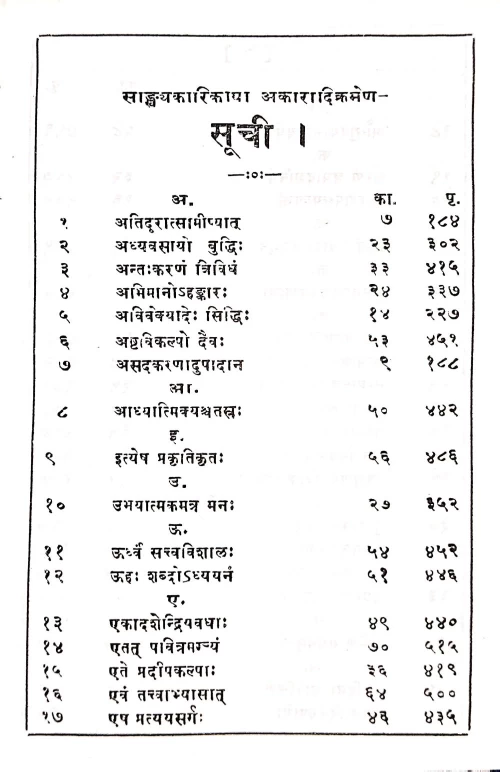 साङ्ख्यकारिकाया अकारादिक्रमेण-
सूची ।
—:०:—
अ. का. पृ.
१ अतिदूरात्सामीप्यात् ७ १८४
२ अध्यवसायो बुद्धिः २३ ३०२
३ अन्तःकरणं त्रिविधं ३३ ४१५
४ अभिमानोऽहङ्कारः २४ ३३७
५ अविवेक्यादेः सिद्धिः १४ २२७
६ अष्टविकल्पो दैवः ५३ ४५१
७ असदकरणादुपादान ९ १८८
आ.
८ आध्यात्मिक्यश्चतस्रः ५० ४४२
इ.
९ इत्येष प्रकृतिकृतः ५६ ४८६
उ.
१० उभयात्मकमत्र मनः २७ ३५२
ऊ.
११ ऊर्ध्वं सत्त्वविशालः ५४ ४५२
१२ ऊहः शब्दोऽध्ययनं ५१ ४४६
ए.
१३ एकादशेन्द्रियवधाः ४९ ४४०
१४ एतत् पवित्रमग्र्यं ७० ५१५
१५ एते प्रदीपकल्पाः ३६ ४१९
१६ एवं तत्त्वाभ्यासात् ६४ ५००
१७ एष प्रत्ययसर्गः ४६ ४३५